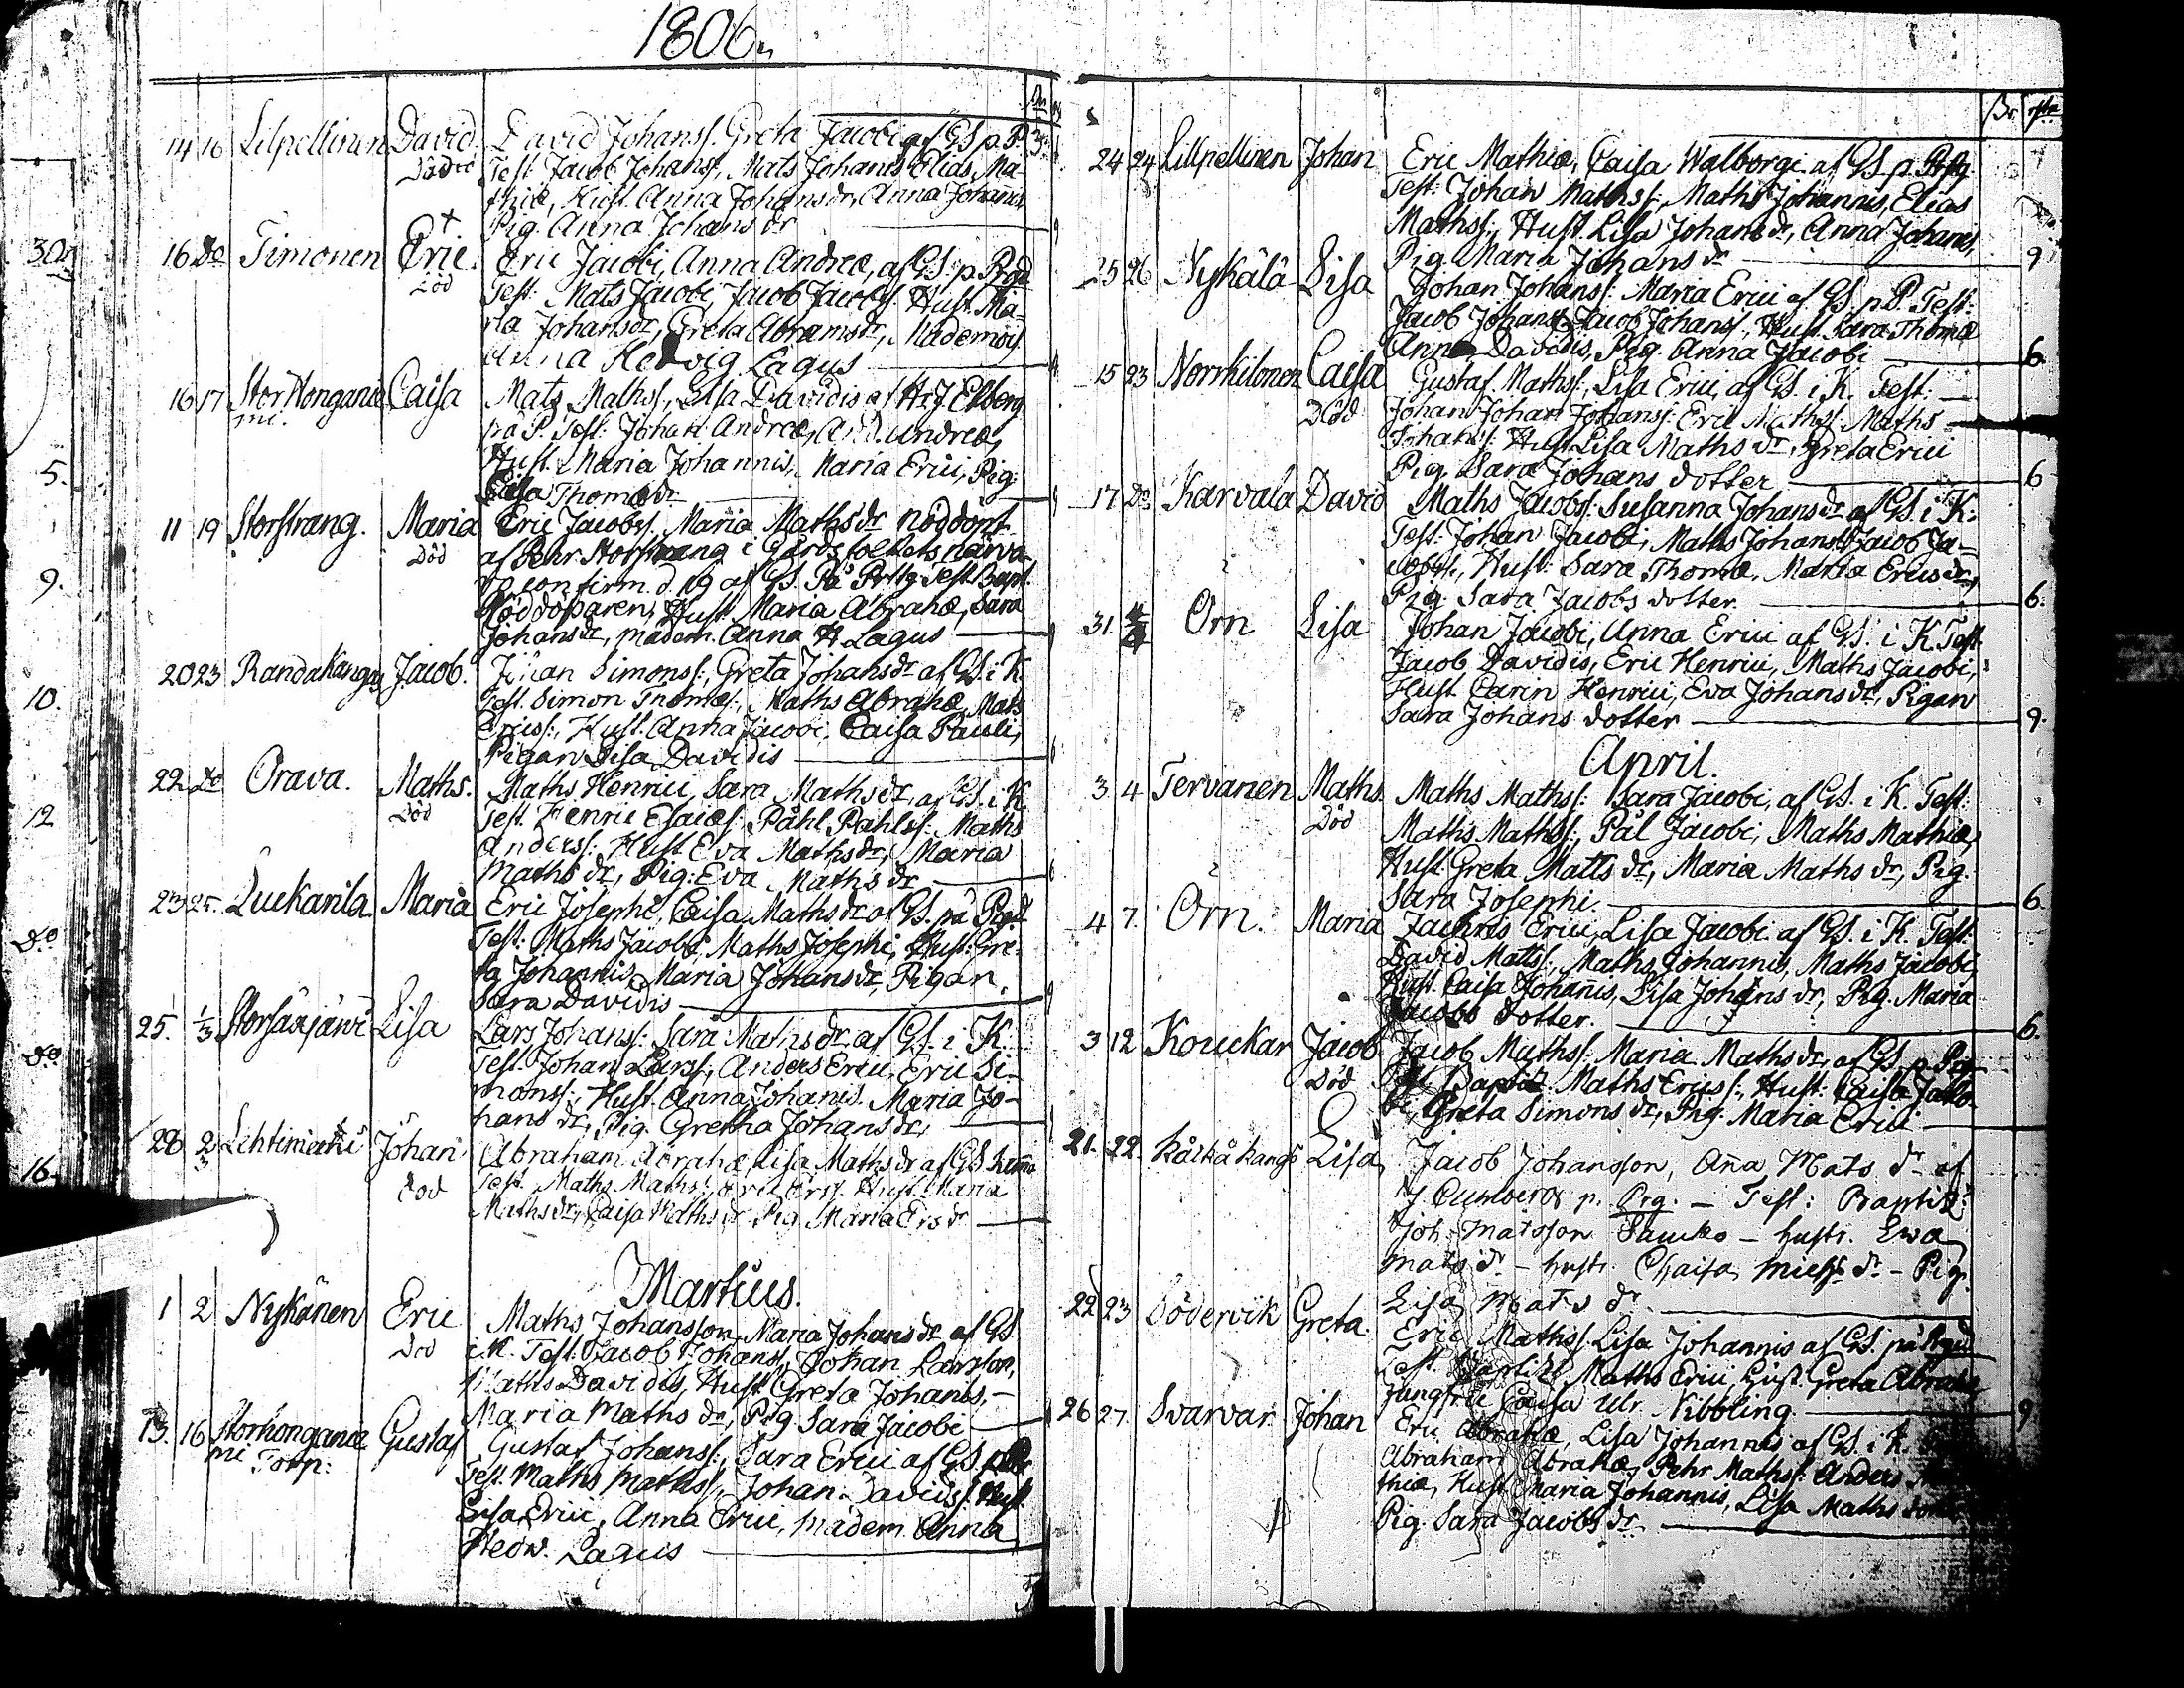 1806.
14 16 Lilpellinen David David Johans/. Greta Jacobi af GS p. P. 3
Död Test Jacob Johans/, Mats Johannis Elias Ma-
thiæ, Hust. Anna Johansdr, Anna Johannis
Pig. Anna Johans dr
30
16 Do Timonen Eric Eric Jacobi, Anna Andreæ, af GS. p Prgd
Död Test. Mats Jacobi, Jacob Jacobs/. Hust. Ma-
ria Johansdr, Greta Abramsdr, Mademois
Anna Hedvig Lagus
16 17 Stor Honganie Caisa Mats Maths/, Lisa Davidis af H. J Elberg
mi. på P. Test. Johan Andreæ, And. Andreæ,
5. Hust. Maria Johannis, Maria Erici, Pig:
Caisa Thomædr
11 19 Storstrang. Maria Eric Jacobs/. Maria Mathsdr nöddöpt
Död af Pehr Storstrang i Gårdsfolkets närva-
9. ro confirm. d. 19 af GS. På Prstg Test Bapt.
Nöddöparen, Hust. Maria Abrahæ, Sara
Johansdr, madem. Anna H Lagus
20 23 Randakangas Jacob. Johan Simons/., Greta Johansdr af GS. i K
10. Test. Simon Thomæs/., Maths Abrahæ, Mats
Erics/:, Hust. Anna Jacobi, Caisa Pauli,
Pigan Lisa Davidis
22 Do Orava. Maths. Maths Henrici, Sara Mathsdr af GS. i K
12 Död Test. Henric Esaiæs/. Påhl Påhls/: Maths
Anders/: Hust Eva Mathsdr, Maria
Maths dr, Pig: Eva Maths dr
23 25. Luckarila Maria Eric Josephi, Caisa Mathsdr af GS. på Prgd
Do Test: Maths Jacobi, Maths Josephi, Hust: Gre-
ta Johannis, Maria Johansdr, Pigan
Sara Davidis
25. 1/3 Storsärjärvi Lisa Lars Johans/: Sara Mathsdr af GS. i K
Do Test Johan Lars/, Anders Erici. Eric Si-
mons/:, Hust. Anna Johanis. Maria Jo-
hans dr, Pig. Gretha Johansdr,
28 2/3 Lehtimäki Johan Abraham Abrahæ Lisa Mathsdr af GS
16. död Test. Maths Maths/, Eric Ers/. Hust. Maria
Mathsdr, Caisa Maths dr Pig. Maria Ersdr
Martius.
1 2 Nykänen Eric Maths Johansson, Maria Johansdr af GS.
Död i K. Test. Jacob Johans/, Johan Larsson,
Maths Davidis, Hust Greta Johanis,
Maria Maths dr, Pig Sara Jacobi
13. 16 Storhonganie Gustaf Gustaf Johans/:, Sara Erici af GS. p
mi Torp: Test. Maths Maths/, Johan Davids/. Hust.
Lisa Erici, Anna Erici, Madem. Anna
Hedv. Lagus
24 24 Lillpellinen Johan Eric Mathiæ, Caisa Walborgi af GS. p. Prstg
Test: Johan Maths/:, Maths Johannis, Elias
Maths/:, Hust. Lisa Johansdr, Anna Johannis,
Pig Maria Johans dr 9
25 26 Nykälä Lisa Johan Johans/: Maria Erici af GS. p P. Test:
Jacob Johans/ Jacob Johans/., Hust. Sara Thomæ
Anna Davidis, Pig. Anna Jacobi 6
15 23 Norrkilonen Caisa Gustaf Maths/:, Lisa Erici, af GS. i K. Test:
Död Johan Johan Johans/: Eric Maths/. Maths
Johans/: Hust Lisa Maths dr, Greta Erici
Pig. Sara Johans dotter 6
17 Do Karvala David Maths Jacobs/: Susanna Johansdr af GS. i K.
Test: Johan Jacobi, Maths Johans/ Jacob Ja-
cobs/:, Hust: Sara Thomæ, Maria Ericsdr,
Pig. Sara Jacobs dotter. 6.
31. Orn Lisa Johan Jacobi, Anna Erici af GS. i K Test.
Jacob Davidis, Eric Henrici, Maths Jacobi,
Hust. Carin Henrici, Eva Johansdr, Pigan
Sara Johans dotter 9.
April.
3 4 Tervanen Maths. Maths Maths/: Sara Jacobi, af GS. i K. Test:
Död Maths Maths/:, Pål Jacobi, Maths Mathiæ,
Hust. Greta Matts dr, Maria Maths dr, Pig.
Sara Josephi. 6.
4 7. Orn. Maria Zachris Erici, Lisa Jacobi af GS. i K. Test.
David Matts/., Maths Johannis, Maths Jacobi,
Hust. Caisa Johanis, Lisa Johans dr, Pig. Maria
Jacobs dotter. 6.
3 12 Kouckar Jacob Jacob Maths/: Maria Mathsdr, af GS. p. Prg
Död Test Baptiz Maths Erics/:, Hust: Caisa Jaco-
bi, Greta Simons dr, Pig. Maria Erici
21. 22. Lisa Jacob Johansson, Aña Mats dr af
p. Prg. – Test: Baptiz
Joh. Matsson – hustr. Ewa
Mats dr – hustr. Chaisa Michs dr – Pig.
Lisa Mats dr
22 23 Södervik Greta Eric Maths/. Lisa Johannis af GS. på Prgd
Test. Baptiz. Maths Erici, Hust. Greta Abrahæ
Jungfru Caisa Ulr. Nibbling. 9
26 27 Svarvar Johan Eric Abrahæ, Lisa Johannis af GS. i K.
Abraham Abrahæ, Pehr Maths/: Anders
thiæ, Hust Maria Johannis, Lisa Maths
Pig. Sara Jacobs dr.